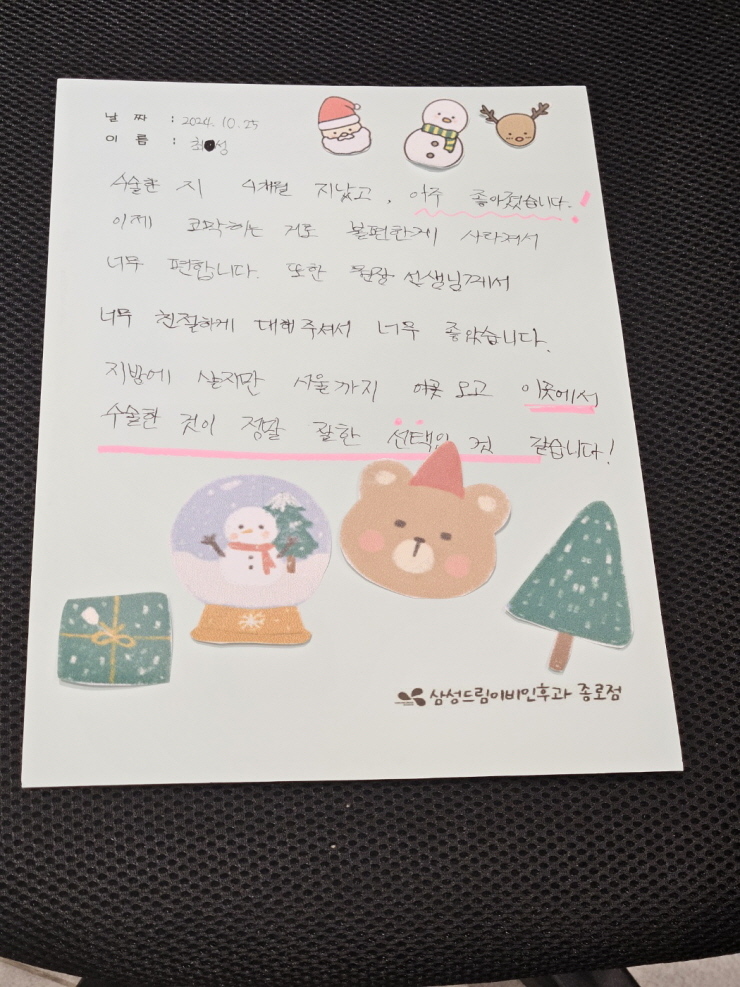 날 짜 : 2024. 10. 25
이 름 : 최 성
수술한 지 4개월 지났고, 아주 좋아졌습니다!
이제 코막히는 거로 불편한게 사라져서
너무 편합니다. 또한 원장 선생님께서
너무 친절하게 대해주셔서 너무 좋았습니다.
지방에 살지만 서울까지 오고 이곳에서
수술한 것이 정말 잘한 선택인 것 같습니다!
삼성드림이비인후과 종로점